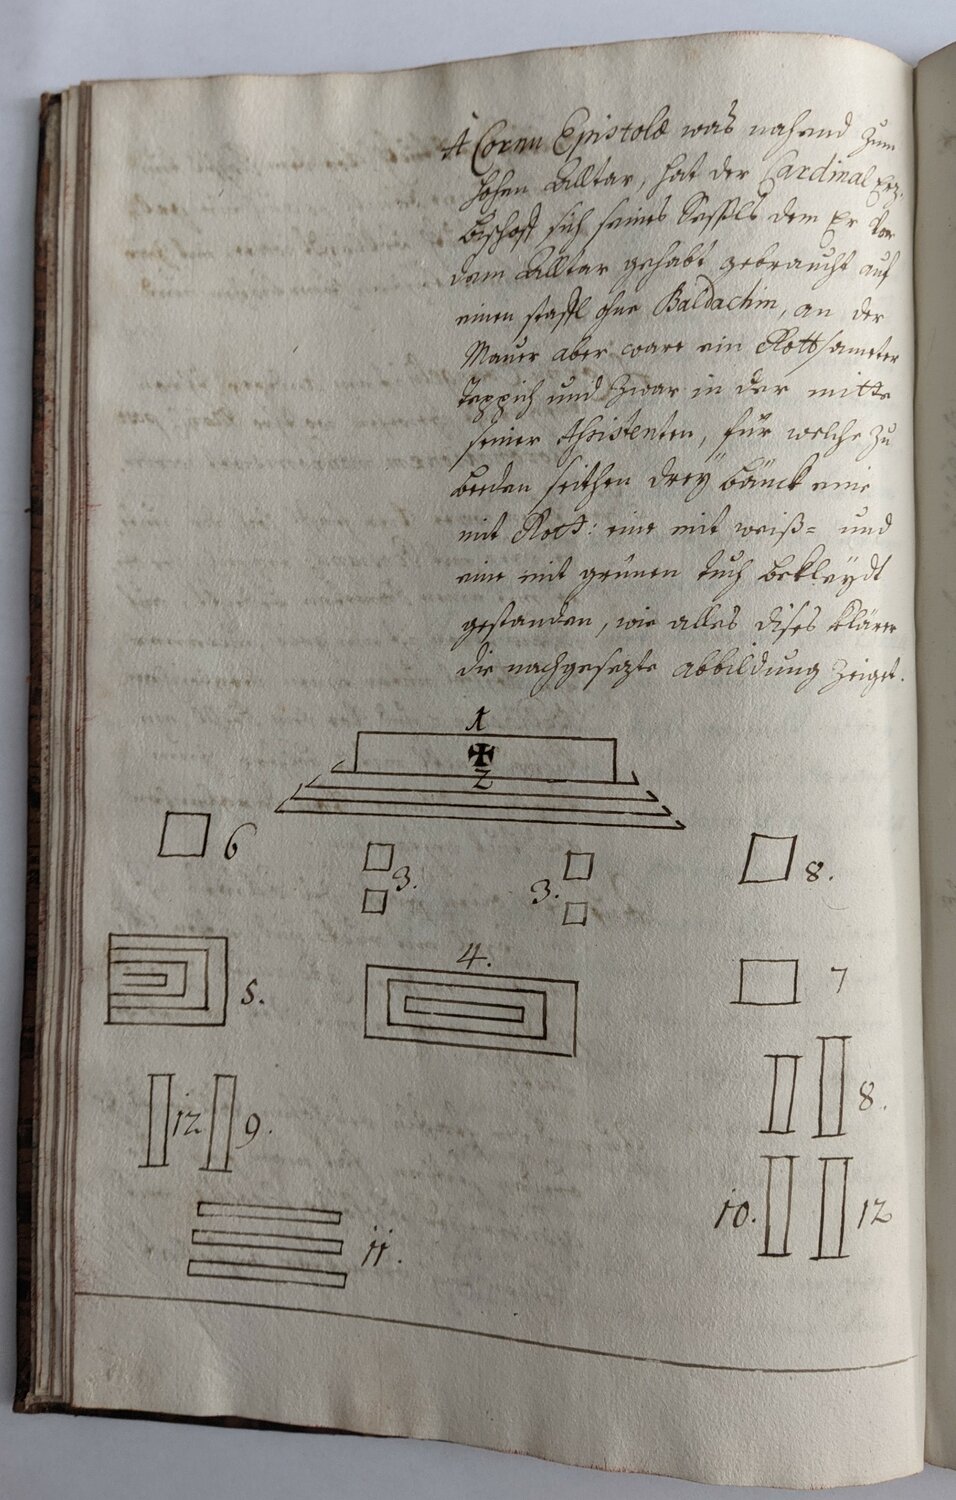 A Cornu Epistolæ was nahend zum
hohen Alltar, hat der Cardinal Erz-
bischoff sich seines Sessels dem Er vor
dem Alltar gehabt gebraucht auf
einen staffl ohne Baldachin, an der
Mauer aber ware ein Rottsameter
Teppich und zwar in der mitte
seiner Assistenten, für welche zu
beeden seithen dreÿ bänck eine
mit Rott: eine mit weiß= und
eine mit grünen tuch bekleÿdt
gestanden, wie alles dises klärer
die nachgesezte abbildung zeiget.
1
2
6
3.
3.
8.
4.
5.
7
8.
12
9.
10.
12
11.